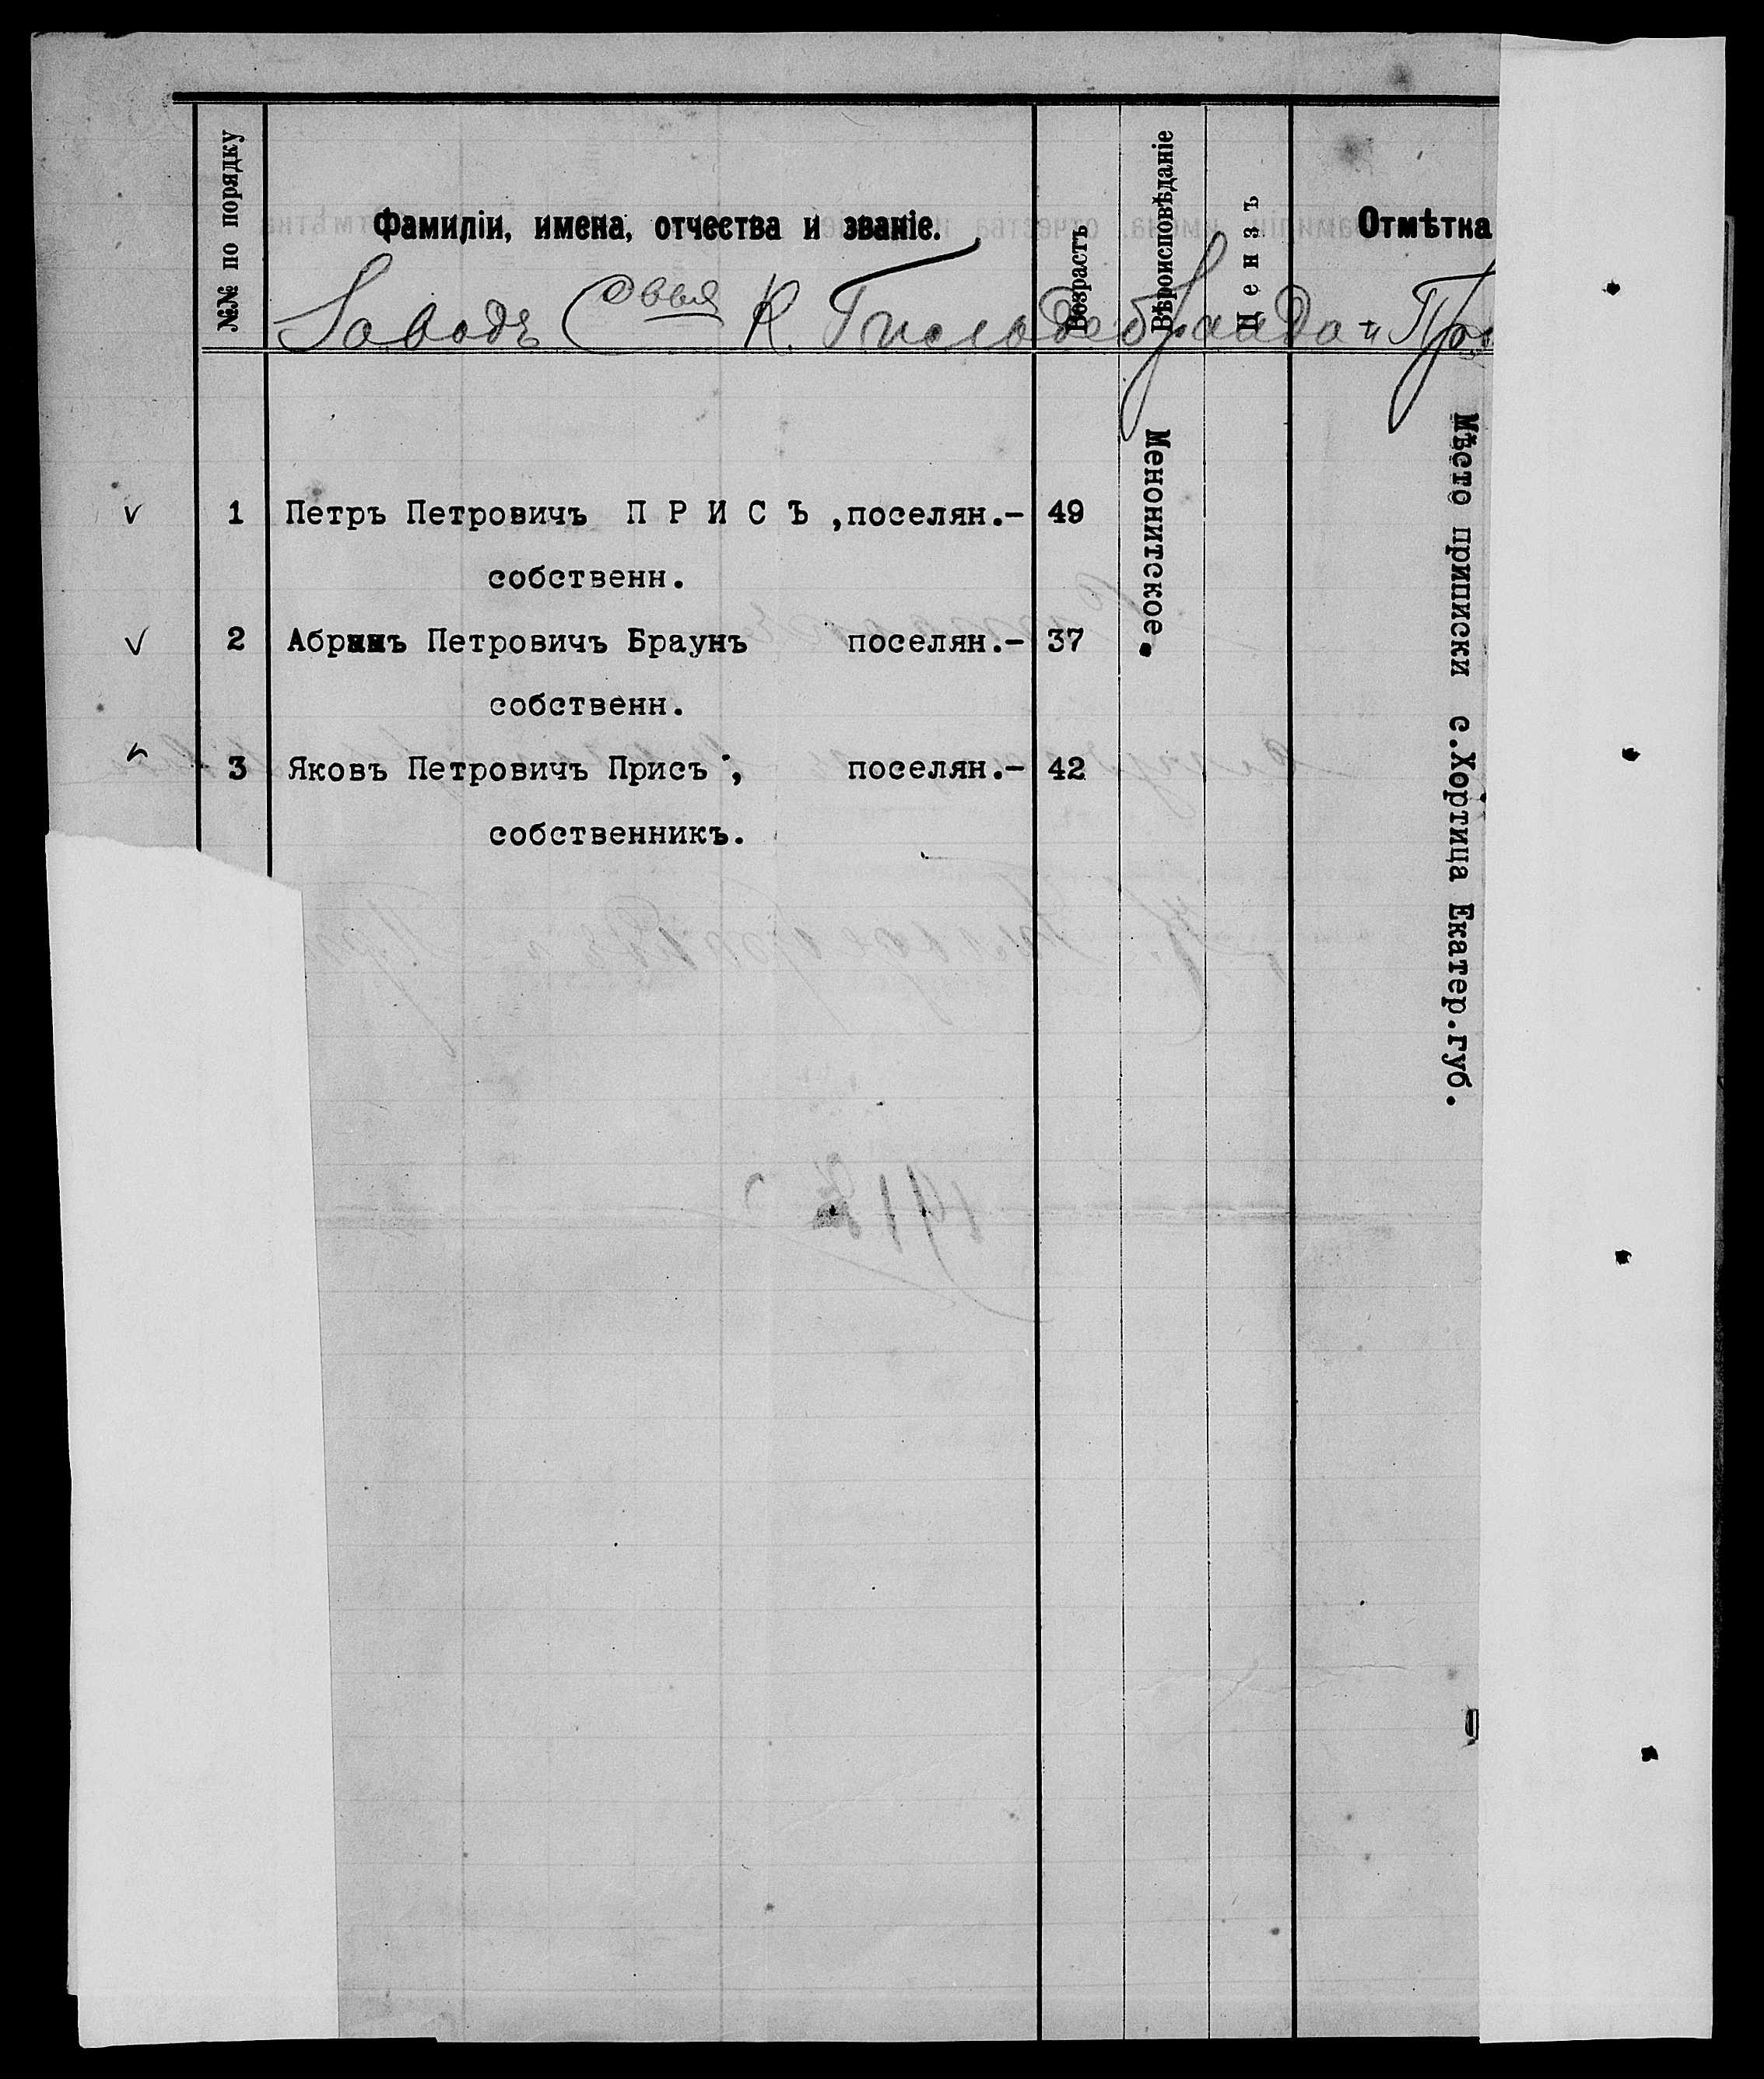 №№ по порядку
Фамиліи, имена, отчества и званіе.
Возрастъ
Вѣроисповѣданіе
Цензъ
Отмѣтка
Заводъ К. Гильдебранда и
Менонитское.
Мѣсто приписки с.Хортица Екатер.губ.
1 Петръ Петровичъ П Р И С Ъ ,поселян.- 49
собственн.
2 Петровичъ Браунъ поселян.- 37
собственн.
3 Яковъ Петровичъ Присъ , поселян.- 42
собственникъ.